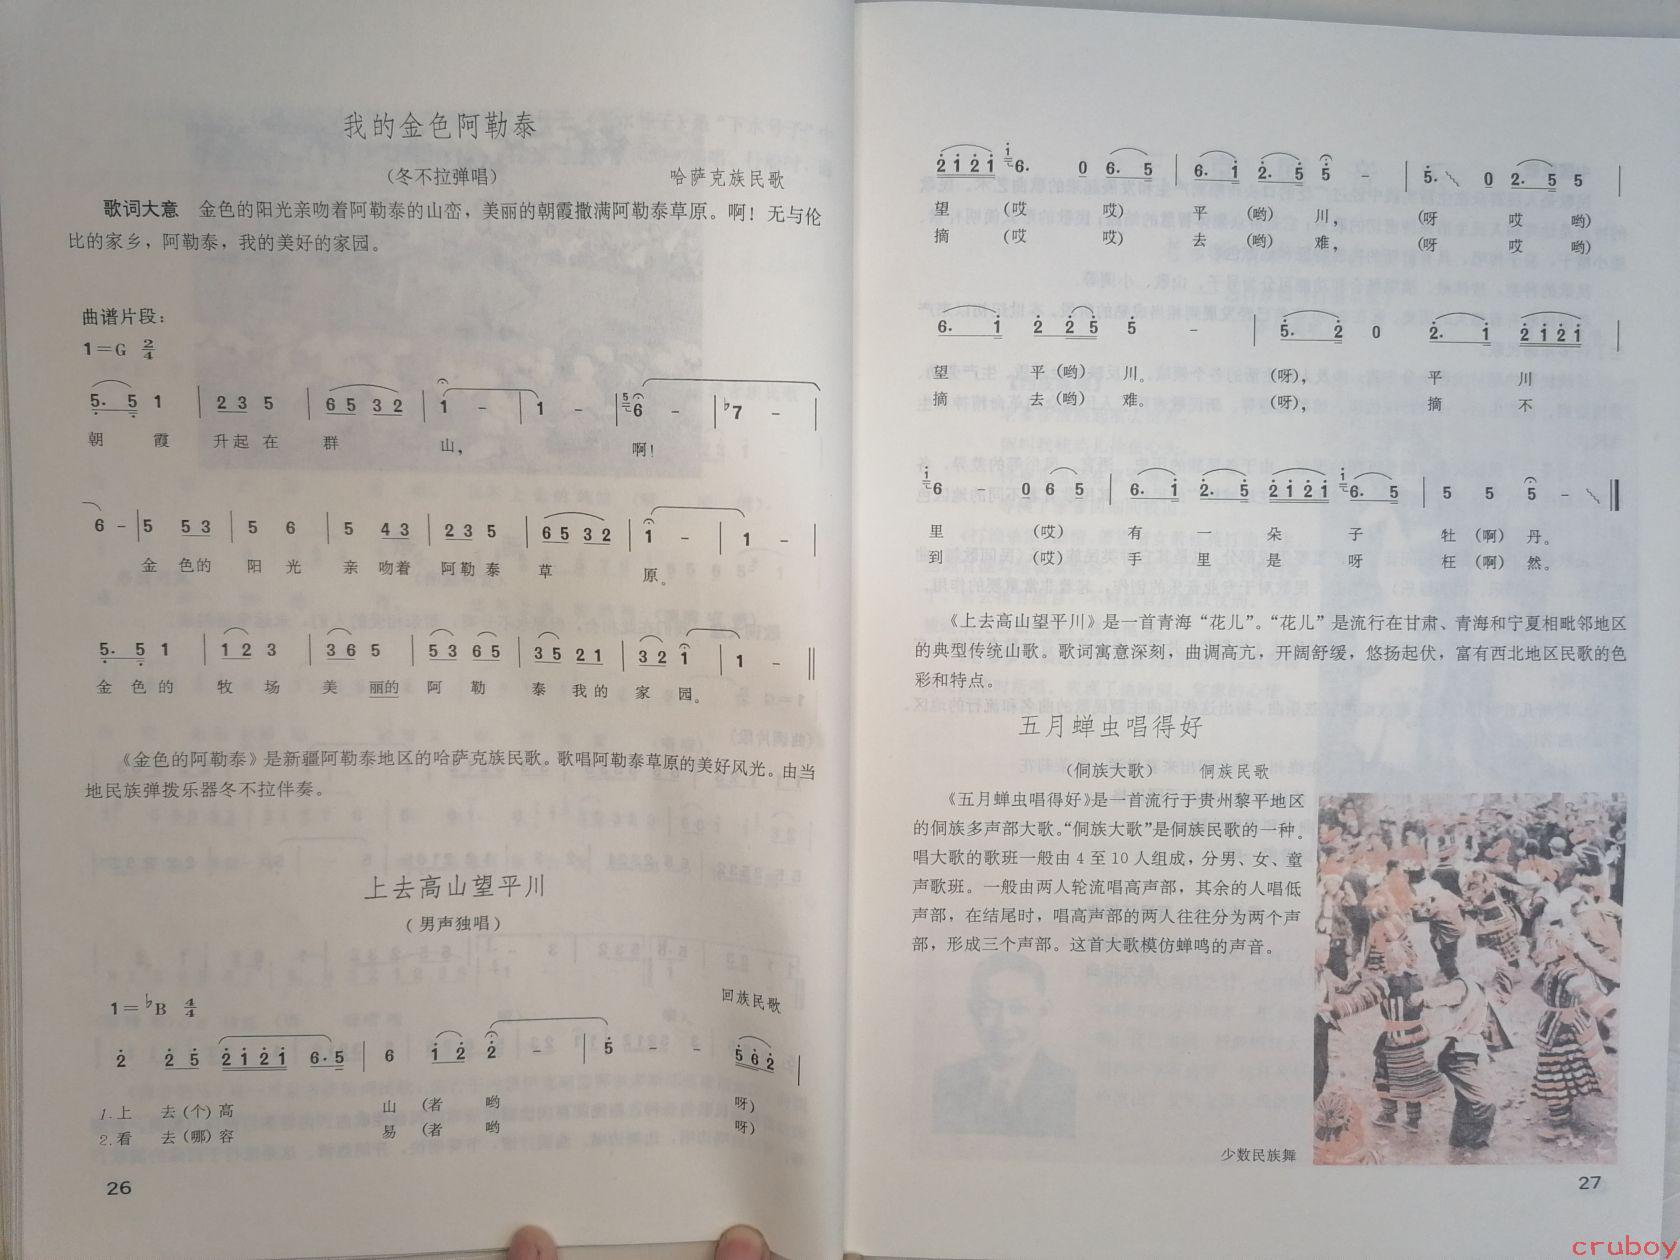 我的金色阿勒泰
(冬不拉弹唱) 哈萨克族民歌
歌词大意 金色的阳光亲吻着阿勒泰的山峦，美丽的朝霞撒满阿勒泰草原。啊！无与伦
比的家乡，阿勒泰，我的美好的家园。
曲谱片段：
1=G 2/4
5. 5 1 | 2 3 5 | 6 5 3 2 | 1 - | 1 - | 5 6 - | ♭7 - |
朝 霞 升起在 群 山， 啊！
6 - | 5 5 3 | 5 6 | 5 4 3 | 2 3 5 | 6 5 3 2 | 1 - | 1 - |
金 色的 阳 光 亲 吻着 阿勒泰 草 原。
5. 5 1 | 1 2 3 | 3 6 5 | 5 3 6 5 | 3 5 2 1 | 3 2 1 | 1 - ‖
金 色 的 牧 场 美 丽的 阿 勒 泰 我 的 家 园。
《金色的阿勒泰》是新疆阿勒泰地区的哈萨克族民歌。歌唱阿勒泰草原的美好风光。由当
地民族弹拨乐器冬不拉伴奏。
上去高山望平川
(男声独唱)
1=♭B 4/4 回族民歌
2 2 5 2 1 2 1 6. 5 | 6 1 2 2 - | 5 - - 5 6 2 |
1.上 去(个)高 山 (者 哟 呀)
2.看 去(哪)容 易 (者 哟 呀)
26
2 1 2 1 i 6. 0 6. 5 | 6. 1 2. 5 5 - | 5. 0 2. 5 5 |
望 (哎 哎) 平 (哟) 川， (呀 哎 哟)
摘 (哎 哎) 去 (哟) 难， (呀 哎 哟)
6. 1 2 2 5 5 - | 5. 2 0 2. 1 2 1 2 1 |
望 平(哟) 川。 (呀)， 平 川
摘 去(哟) 难。 (呀)， 摘 不
i 6 - 0 6 5 | 6. 1 2. 5 2 1 2 1 i 6. 5 | 5 5 5 - ‖
里 (哎) 有 一 朵 子 牡 (啊) 丹。
到 (哎) 手 里 是 呀 枉 (啊) 然。
《上去高山望平川》是一首青海“花儿”。“花儿”是流行在甘肃、青海和宁夏相毗邻地区
的典型传统山歌。歌词寓意深刻，曲调高亢，开阔舒缓，悠扬起伏，富有西北地区民歌的色
彩和特点。
五月蝉虫唱得好
(侗族大歌) 侗族民歌
《五月蝉虫唱得好》是一首流行于贵州黎平地区
的侗族多声部大歌。“侗族大歌”是侗族民歌的一种。
唱大歌的歌班一般由4至10人组成，分男、女、童
声歌班。一般由两人轮流唱高声部，其余的人唱低
声部，在结尾时，唱高声部的两人往往分为两个声
部，形成三个声部。这首大歌模仿蝉鸣的声音。
少数民族舞
27
cruboy